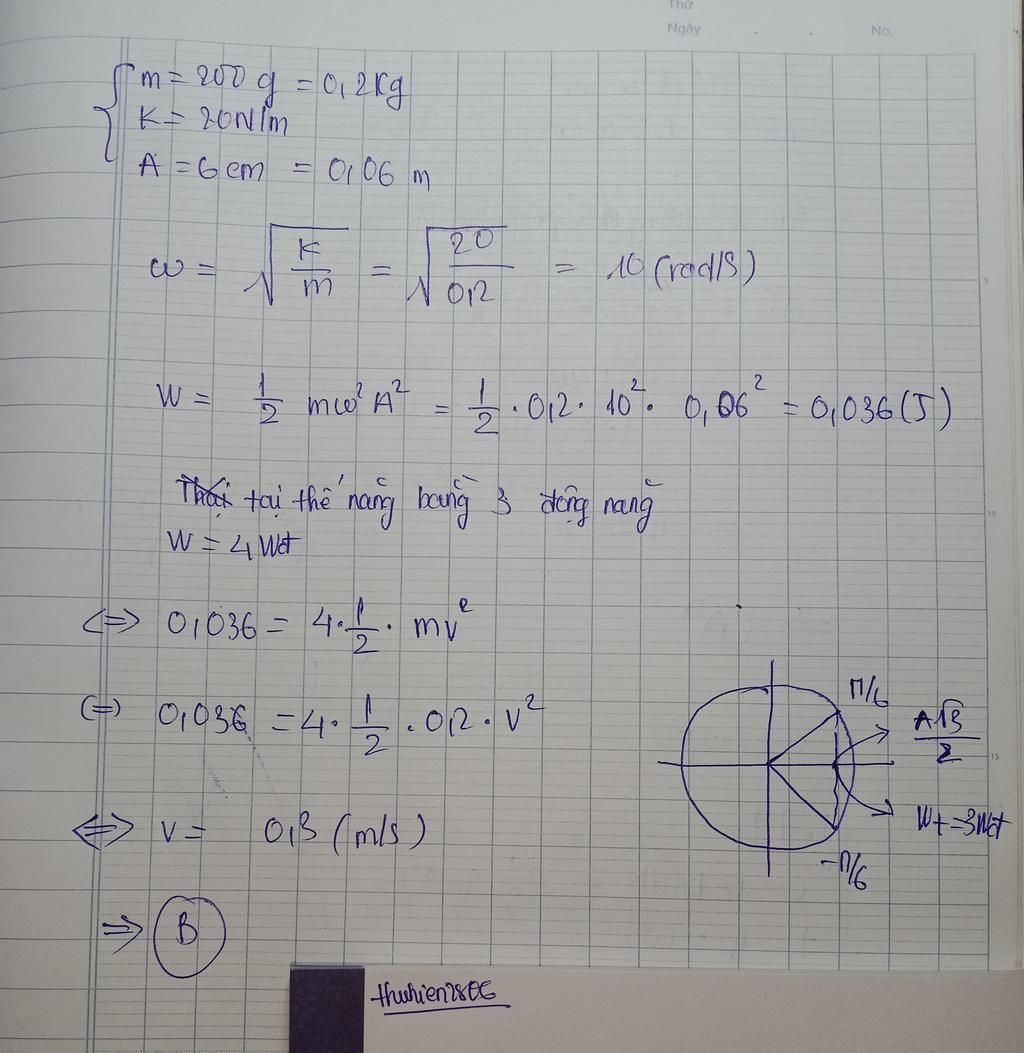 Thứ
Ngày . . No.
m = 200 g = 0,2 Kg
K = 20N/m
A = 6 cm = 0,06 m
ω = √(K/m) = √(20/0,2) = 10 (rad/s)
5
W = 1/2 mω²A² = 1/2 · 0,2 · 10² · 0,06² = 0,036 (J)
tại thế năng bằng 3 động năng
10
W = 4 Wđ
<=> 0,036 = 4 · 1/2 · mv²
<=> 0,036 = 4 · 1/2 · 0,2 · v²
π/6
A√3/2
15
<=> v = 0,3 (m/s)
Wt = 3Wđ
-π/6
=> B
thuhien2806